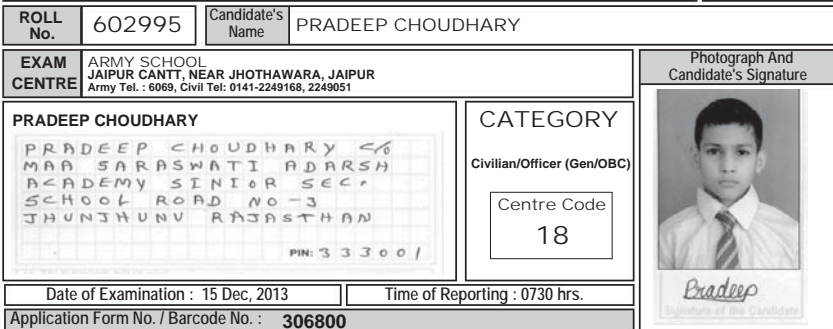 ROLL No. 602995 Candidate's Name PRADEEP CHOUDHARY
EXAM CENTRE
ARMY SCHOOL
JAIPUR CANTT, NEAR JHOTHAWARA, JAIPUR
Army Tel. : 6069, Civil Tel: 0141-2249168, 2249051
Photograph And
Candidate's Signature
PRADEEP CHOUDHARY
PRADEEP CHOUDHARY C/o
MAA SARASWATI ADARSH
ACADEMY SINIOR SEC.
SCHOOL ROAD NO-3
JHUNJHUNU RAJASTHAN
PIN: 333001
CATEGORY
Civilian/Officer (Gen/OBC)
Centre Code
18
Pradeep
Signature of the Candidate
Date of Examination : 15 Dec, 2013
Time of Reporting : 0730 hrs.
Application Form No. / Barcode No. : 306800